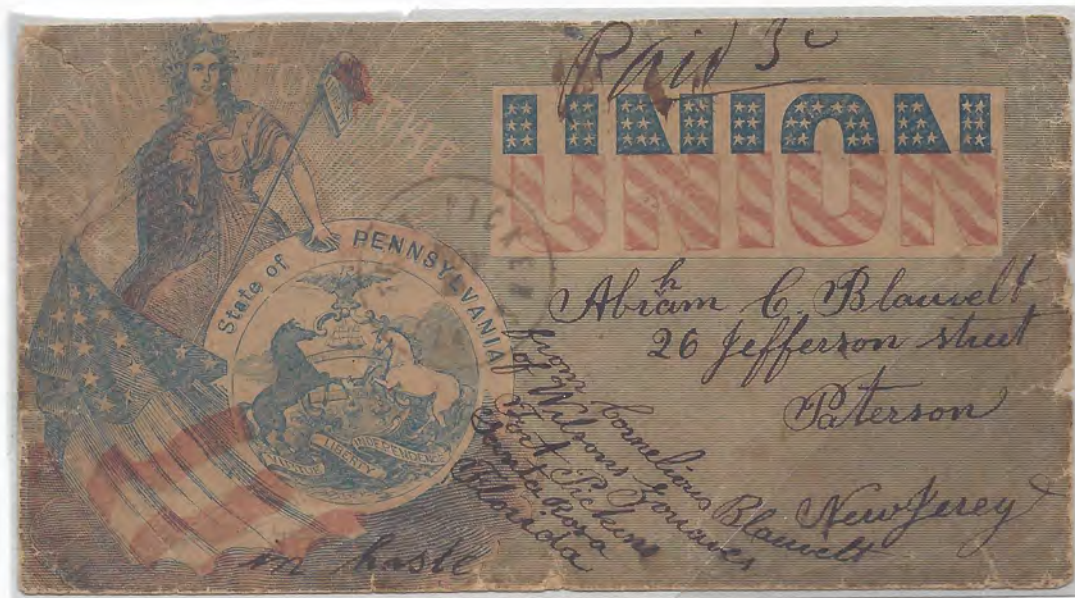 FOR
TO THE
Paid 3c
UNION
PICKEN
State of PENNSYLVANIA
VIRTUE LIBERTY INDEPENDENCE
Abrhm C. Blauvelt
26 Jefferson street
Paterson
New Jersey
from Cornelious Blauvelt
of Wilsons Zouaves
Fort Pickens
Santa Rosa
Florida
in haste